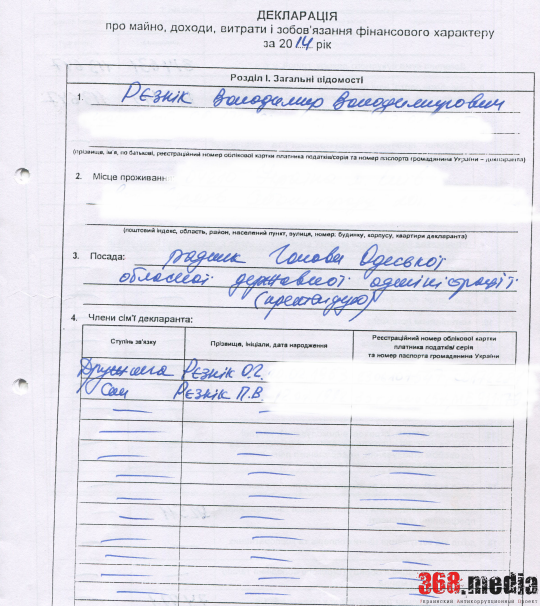 ДЕКЛАРАЦІЯ
про майно, доходи, витрати і зобов'язання фінансового характеру
за 2014 рік
Розділ I. Загальні відомості
1. Рєзнік Володимир Володимирович
(прізвище, ім'я, по батькові, реєстраційний номер облікової картки платника податків/серія та номер паспорта громадянина України – декларанта)
2. Місце проживанн
(поштовий індекс, область, район, населений пункт, вулиця, номер: будинку, корпусу, квартири декларанта)
3. Посада: радник Голови Одеської
обласної державної адміністрації
(претендую)
4. Члени сім'ї декларанта:
Ступінь зв'язку
Прізвище, ініціали, дата народження
Реєстраційний номер облікової картки
платника податків/ серія
та номер паспорта громадянина України
Дружина Рєзнік О.Г.
Син Рєзнік П.В
368.media
Украинский Антикоррупционный Проект